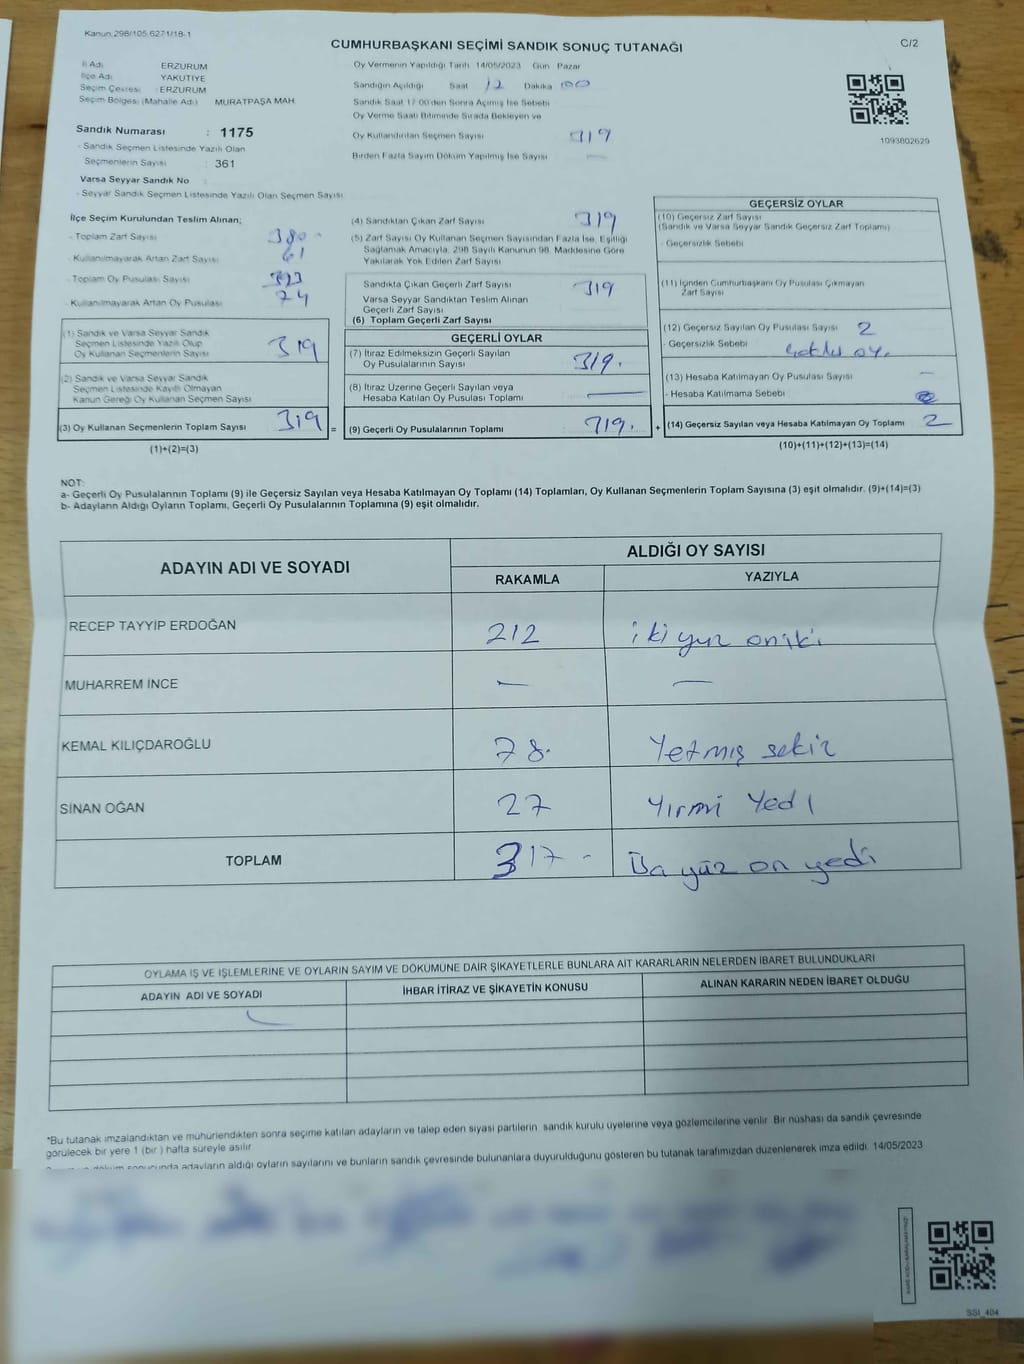 Kanun:298/105,6271/18-1
CUMHURBAŞKANI SEÇİMİ SANDIK SONUÇ TUTANAĞI
C/2
İl Adı ERZURUM
İlçe Adı YAKUTİYE
Seçim Çevresi : ERZURUM
Seçim Bölgesi (Mahalle Adı) MURATPAŞA MAH.
Sandık Numarası : 1175
- Sandık Seçmen Listesinde Yazılı Olan
Seçmenlerin Sayısı : 361
Varsa Seyyar Sandık No
- Seyyar Sandık Seçmen Listesinde Yazılı Olan Seçmen Sayısı
Oy Vermenin Yapıldığı Tarih 14/05/2023 Gün Pazar
Sandığın Açıldığı Saat 17 Dakika 00
Sandık Saat 17:00'den Sonra Açılmış İse Sebebi
Oy Verme Saati Bitiminde Sırada Bekleyen ve
Oy Kullandırılan Seçmen Sayısı 319
Birden Fazla Sayım Döküm Yapılmış İse Sayısı —
1093802629
İlçe Seçim Kurulundan Teslim Alınan;
- Toplam Zarf Sayısı 380
- Kullanılmayarak Artan Zarf Sayısı 61
- Toplam Oy Pusulası Sayısı
- Kullanılmayarak Artan Oy Pusulası 74
(1) Sandık ve Varsa Seyyar Sandık
Seçmen Listesinde Yazılı Olup
Oy Kullanan Seçmenlerin Sayısı 319
(2) Sandık ve Varsa Seyyar Sandık
Seçmen Listesinde Kayıtlı Olmayan
Kanun Gereği Oy Kullanan Seçmen Sayısı
(3) Oy Kullanan Seçmenlerin Toplam Sayısı 319
(1)+(2)=(3)
=
(4) Sandıktan Çıkan Zarf Sayısı 319
(5) Zarf Sayısı Oy Kullanan Seçmen Sayısından Fazla İse, Eşitliği
Sağlamak Amacıyla, 298 Sayılı Kanunun 98. Maddesine Göre
Yakılarak Yok Edilen Zarf Sayısı
Sandıkta Çıkan Geçerli Zarf Sayısı 319
Varsa Seyyar Sandıktan Teslim Alınan
Geçerli Zarf Sayısı
(6) Toplam Geçerli Zarf Sayısı
GEÇERLİ OYLAR
(7) İtiraz Edilmeksizin Geçerli Sayılan
Oy Pusulalarının Sayısı 319.
(8) İtiraz Üzerine Geçerli Sayılan veya
Hesaba Katılan Oy Pusulası Toplamı —
(9) Geçerli Oy Pusulalarının Toplamı 319.
+
GEÇERSİZ OYLAR
(10) Geçersiz Zarf Sayısı
(Sandık ve Varsa Seyyar Sandık Geçersiz Zarf Toplamı)
- Geçersizlik Sebebi
(11) İçinden Cumhurbaşkanı Oy Pusulası Çıkmayan
Zarf Sayısı
(12) Geçersiz Sayılan Oy Pusulası Sayısı 2
- Geçersizlik Sebebi oy.
(13) Hesaba Katılmayan Oy Pusulası Sayısı —
- Hesaba Katılmama Sebebi
(14) Geçersiz Sayılan veya Hesaba Katılmayan Oy Toplamı 2
(10)+(11)+(12)+(13)=(14)
NOT:
a- Geçerli Oy Pusulalarının Toplamı (9) ile Geçersiz Sayılan veya Hesaba Katılmayan Oy Toplamı (14) Toplamları, Oy Kullanan Seçmenlerin Toplam Sayısına (3) eşit olmalıdır. (9)+(14)=(3)
b- Adayların Aldığı Oyların Toplamı, Geçerli Oy Pusulalarının Toplamına (9) eşit olmalıdır.
ADAYIN ADI VE SOYADI
ALDIĞI OY SAYISI
RAKAMLA YAZIYLA
RECEP TAYYİP ERDOĞAN 212 iki yuz oniki
MUHARREM İNCE — —
KEMAL KILIÇDAROĞLU 78. Yetmiş sekiz
SİNAN OĞAN 27 Yirmi Yedi
TOPLAM 317 - yüz on yedi
OYLAMA İŞ VE İŞLEMLERİNE VE OYLARIN SAYIM VE DÖKÜMÜNE DAİR ŞİKAYETLERLE BUNLARA AİT KARARLARIN NELERDEN İBARET BULUNDUKLARI
ADAYIN ADI VE SOYADI İHBAR İTİRAZ VE ŞİKAYETİN KONUSU ALINAN KARARIN NEDEN İBARET OLDUĞU
*Bu tutanak imzalandıktan ve mühürlendikten sonra seçime katılan adayların ve talep eden siyasi partilerin sandık kurulu üyelerine veya gözlemcilerine verilir. Bir nüshası da sandık çevresinde
görülecek bir yere 1 (bir ) hafta süreyle asılır.
sonucunda adayların aldığı oyların sayılarını ve bunların sandık çevresinde bulunanlara duyurulduğunu gösteren bu tutanak tarafımızdan düzenlenerek imza edildi. 14/05/2023
SSİ_404